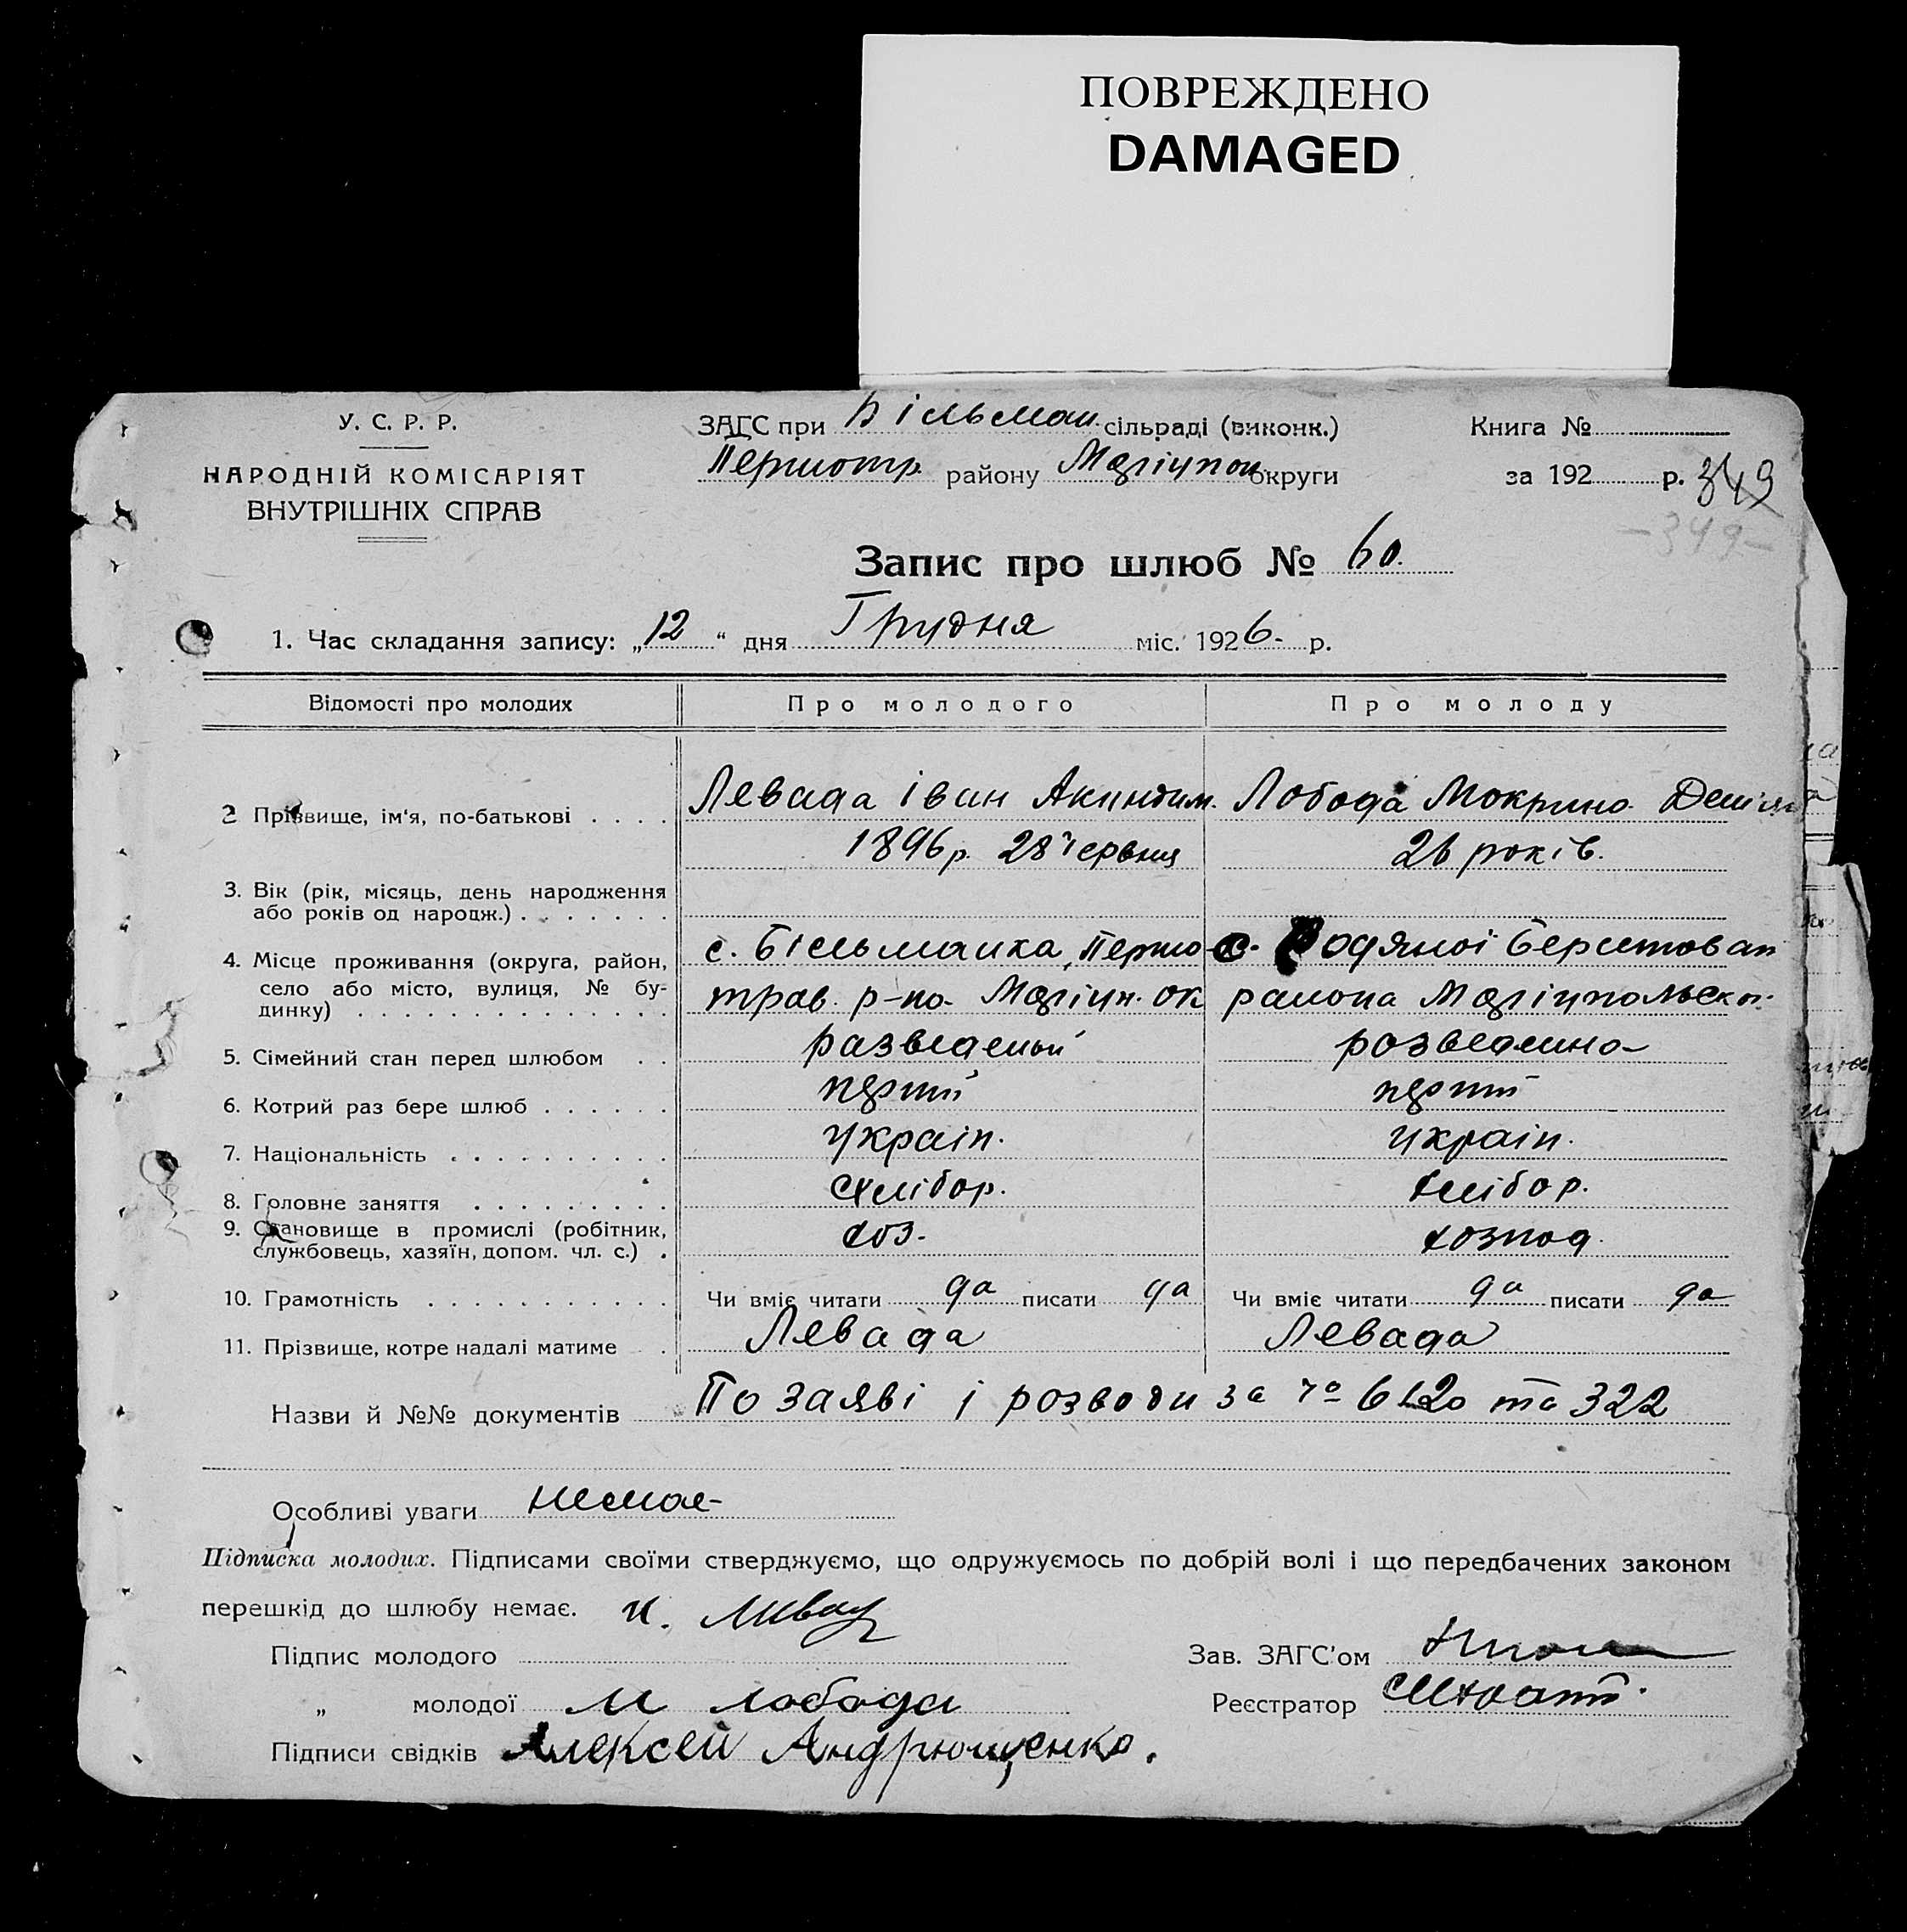 ПОВРЕЖДЕНО
DAMAGED
У. С. Р. Р.
НАРОДНІЙ КОМІСАРІЯТ
ВНУТРІШНІХ СПРАВ
ЗАГС при Більман. сільраді (виконк.)
Першотр. району Маріупол. округи
Книга №
за 192 р. 349
-349-
Запис про шлюб № 60.
1. Час складання запису: „12“ дня Грудня міс. 1926 р.
Відомості про молодих Про молодого Про молоду
2 Прізвище, ім'я, по-батькові Левада Іван Акиндим. Лобода Мокрина
3. Вік (рік, місяць, день народження або років од народж.) 1896 р. 28 Червня 26 років.
4. Місце проживання (округа, район, село або місто, вулиця, № будинку) с. Більманка, Першотрав. р-на Маріуп. ок с. Водяної Берестован района Маріупольськ.
5. Сімейний стан перед шлюбом разведений розведена
6. Котрий раз бере шлюб
7. Національність україн. україн.
8. Головне заняття хлібор. хлібор.
9. Становище в промислі (робітник, службовець, хазяїн, допом. чл. с.) хоз.
10. Грамотність Чи вміє читати да писати да Чи вміє читати да писати да
11. Прізвище, котре надалі матиме Левада Левада
Назви й №№ документів По заяві і розводи за та 322
Особливі уваги немає
Підписка молодих. Підписами своїми стверджуємо, що одружуємось по добрій волі і що передбачених законом
перешкід до шлюбу немає. и.
Підпис молодого
Зав. ЗАГС'ом
„ молодої м лобода
Реєстратор
Підписи свідків Алексей Андрющенко.